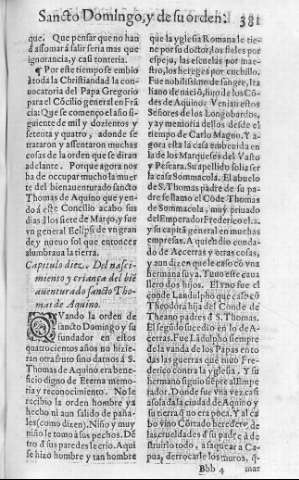 Sancto Domingo, y de su orden. 381
que. Que pensar que no han
d assomar a salir seria mas que
ignorancia, y casi tonteria.
¶ Por este tiempo se embio
a toda la Christiandad la con-
uocatoria del Papa Gregorio
para el Cōcilio general en Frā
cia: Que se començo el año si-
guiente de mil y dozientos y
setenta y quatro, adonde se
trataron y assentaron muchas
cosas de la orden que se diran
adelante. Porque agora nos
ha de occupar mucho la muer
te del bienauenturado sancto
Thomas de Aquino que yen-
do à este Concilio acabo sus
dias à los siete de Março, y fue
vn general Eclipsi de vn gran
de y nueuo sol que entonces
alumbraua la tierra.
Capitulo diez. Del nasci-
miento y criança del biē
auenturado sancto Tho-
mas de Aquino.
QVando la orden de
sancto Domingo y su
fundador en estos
quatrocientos años no hizie-
ran otra fruto sino darnos à S.
Thomas de Aquino era bene-
ficio digno de Eterna memo-
ria y reconocimiento. No le
recibio la orden hombre ya
hecho ni aun salido de paña-
les (como dizen), Niño y muy
niño le tomo à sus pechos. Dē
tro d sus paredes le crio. Aqui
se hizo hombre y tan hombre
que la yglesia Romana le tie-
ne por su doctor, los fieles por
espejo, las escuelas por mae-
stro, los hereges por cuchillo.
Fue nobilissimo de sangre, Ita
liano de nació, hijo de los Cō-
des de Aquino: Venian estos
Señores de los Longobardos,
y ay memoria dellos desde el
tiempo de Carlo Magno. Y a-
gora esta la casa embeuida en
la de los Marqueses del Vasto
y Pescara. Su apellido solia ser
la casa Sommacola. El abuelo
de S. Thomas padre de su pa-
dre se llamo el Cōde Thomas
de Sommacola, muy priuado
del Emperador Frederico el 2.
y su capitā general en muchas
empresas. A quien dio conda-
do de Accerras y otras cosas,
y aun dizen que le caso cō vna
hermana suya. Tuuo este caua
llero dos hijos. El vno fue el
conde Landulpho que caso cō
Theodora hija del Conde de
Theano padres d S. Thomas.
El segūdo sucedio en lo de A-
cerras. Fue Lādulpho siempre
de la vanda de los Papas en to
das las guerras que huuo Fre-
derico contra la yglesia. Y su
hermano siguio siēpre al Empe-
rador. Donde fue vna vez ca
assolada la ciudad de Aquino y
su tierra q̄ no era poca. Y al ca
bo vino Corrado heredero de
las crueldades d su padre, à de
struirlo todo, à saquear a Ca-
pua, derrocarle los muros, q̄-
Bbb 4 mar